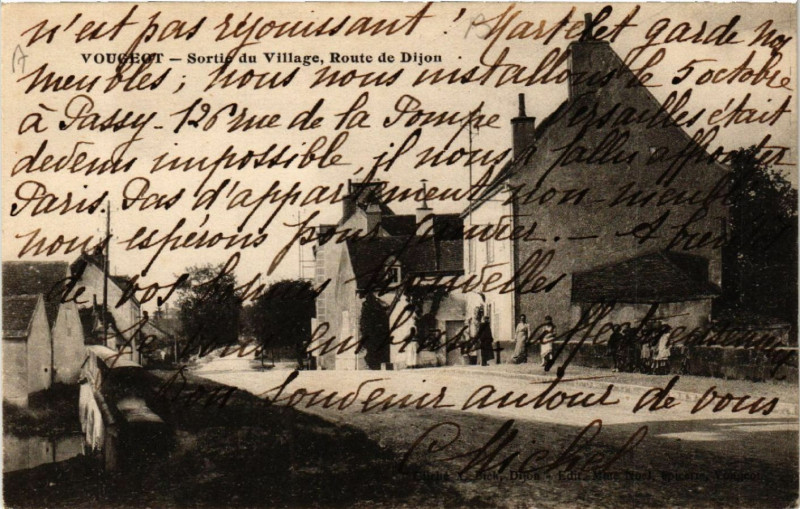 n'est pas réjouissant ! Martelet garde nos
VOUGEOT — Sortie du Village, Route de Dijon
meubles ; nous nous installons le 5 octobre
à Passy - 126 rue de la Pompe Versailles était
devenu impossible, il nous a fallu affronter
Paris. Pas d'appartement non-meublé
nous espérons pour janvier. — A bientôt
de vos bonnes nouvelles
Je vous embrasse affectueusement
Bon souvenir autour de vous
C Michel
Dijon - Edit. Mme Noël, épicerie, Vougeot